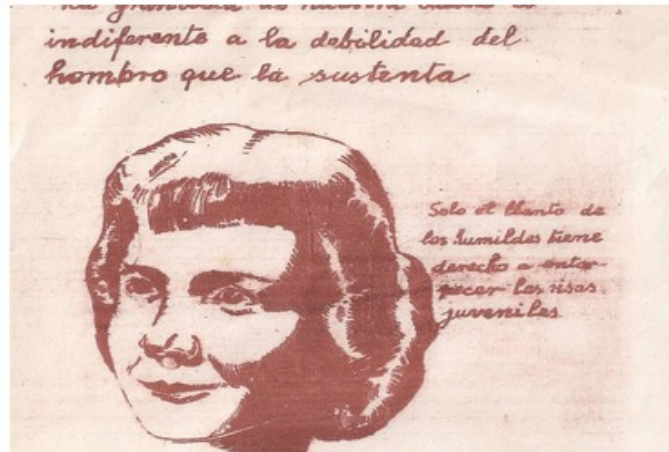 indiferente a la debilidad del
hombro que la sustenta
Solo el llanto de
los humildes tiene
derecho a entor-
pecer las risas
juveniles